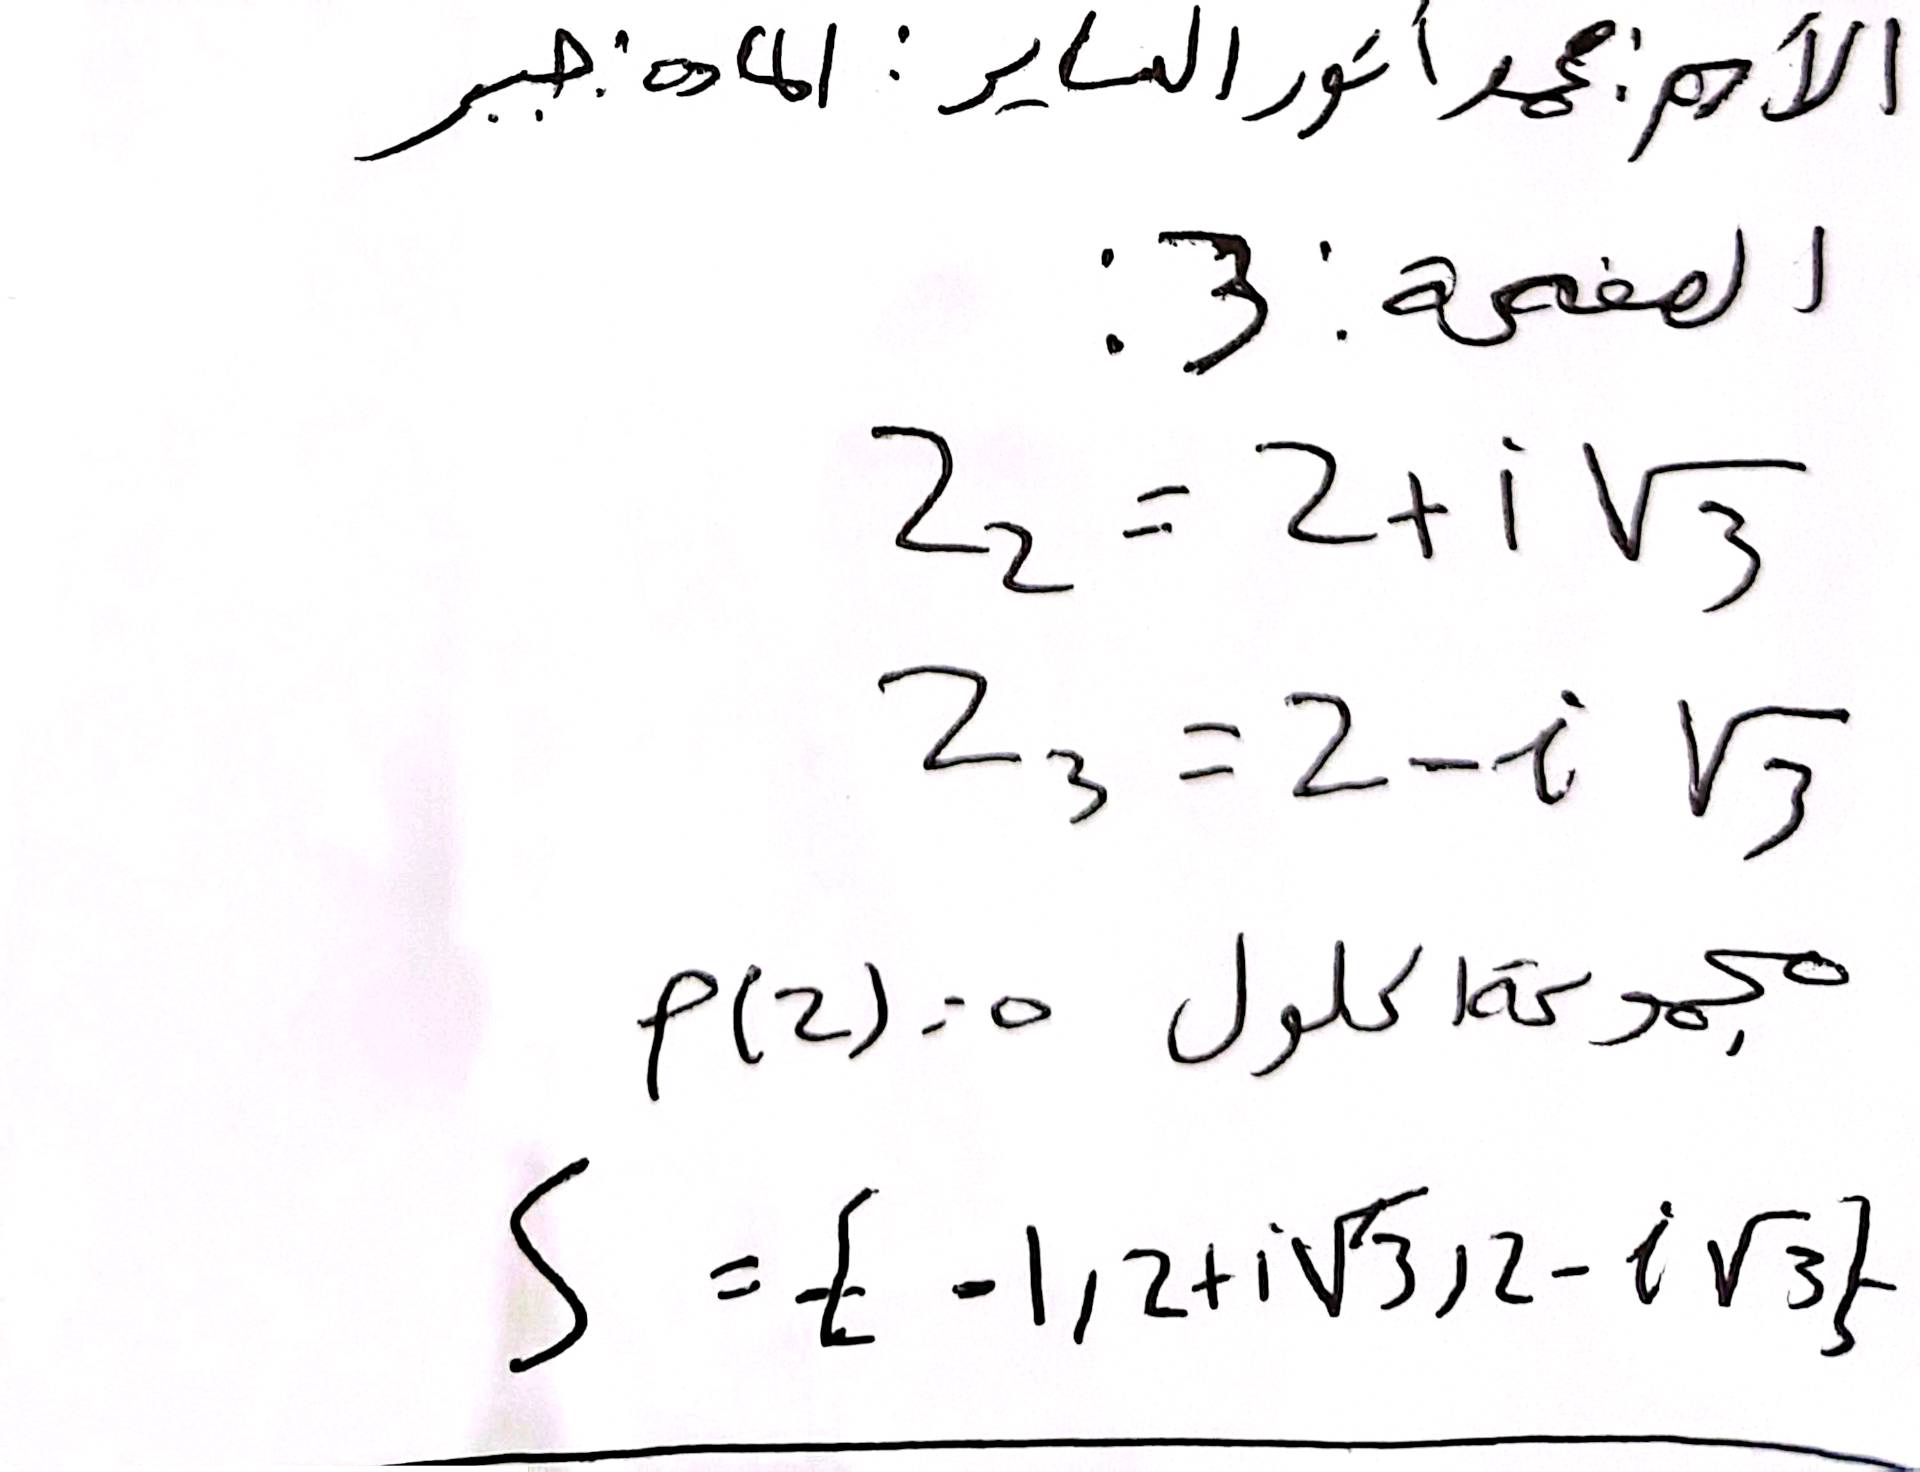 الاسم: محمد أنور الساير: المادة: جبر
الصفحة: 3:
Z₂ = 2 + i √3
Z₃ = 2 - i √3
مجموعة حلول P(z) = 0
S = { -1, 2+i√3, 2-i√3}